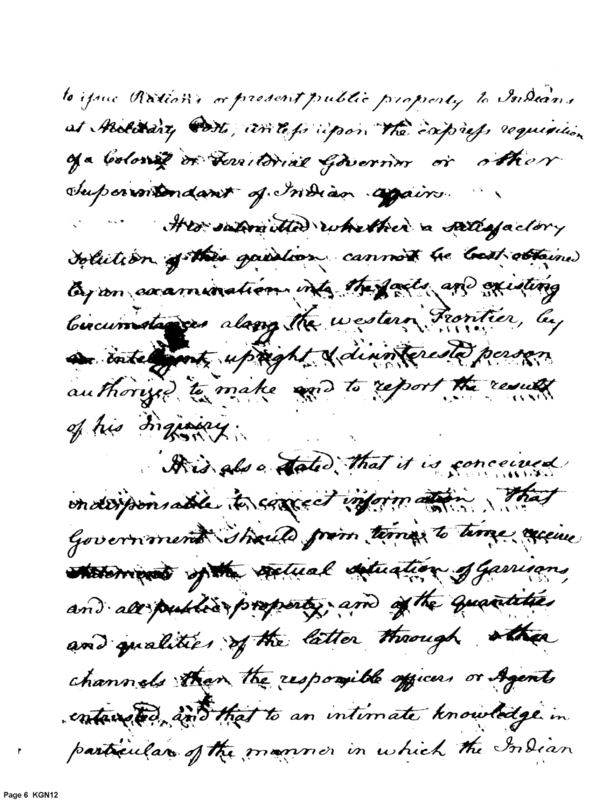 to issue Rations or present public property to Indians
at Military Posts, unless upon the express requisition
of a Colonel or Territorial Governor or other
Superintendant of Indian affairs.
It is submitted whether a satisfactory
solution of this question cannot be best obtained
by an examination into the facts and existing
Circumstances along the western Frontier, by
an intelligent, upright & disinterested person
authorized to make and to report the result
of his Inquiry.
It is also stated, that it is conceived
indispensable to correct information that
Government should from time to time receive
statements of the actual situation of Garrisons,
and all public property, and of the Quantities
and qualities of the latter through other
channels than the responsible officers or Agents
entrusted, and that to an intimate knowledge in
particular of the manner in which the Indian
Page 6 KGN12